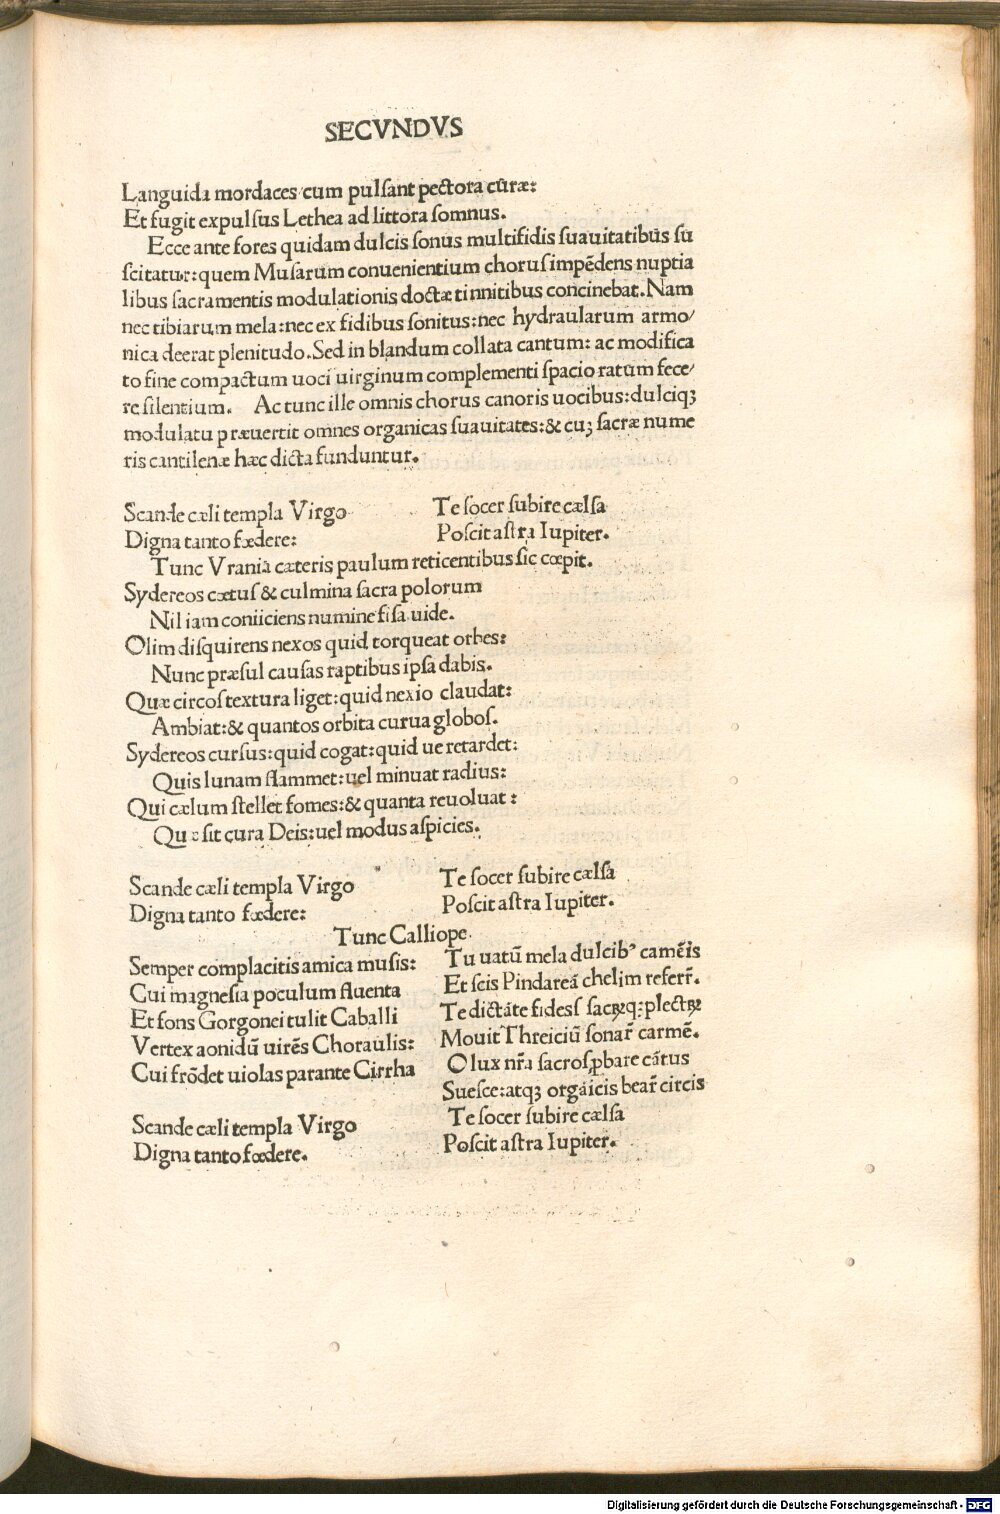 SECVNDVS
Languida mordaces cum pulſant pectora curæ:
Et fugit expulſus Lethea ad littora ſomnus.
Ecce ante fores quidam dulcis ſonus multifidis ſuauitatibus ſu
ſcitatur: quem Muſarum conuenientium chorus impēdens nuptia
libus ſacramentis modulationis doctæ tinnitibus concinebat. Nam
nec tibiarum mela: nec ex fidibus ſonitus: nec hydraularum armo/
nica deerat plenitudo. Sed in blandum collata cantum: ac modifica
to fine compactum uoci uirginum complementi ſpacio ratum fece/
re ſilentium. Ac tunc ille omnis chorus canoris uocibus: dulciqꝫ
modulatu præuertit omnes organicas ſuauitates: & cuꝫ ſacræ nume
ris cantilenæ hæc dicta funduntur.
Scande cæli templa Virgo
Digna tanto fœdere:
Te ſocer ſubire cælſa
Poſcit aſtra Iupiter.
Tunc Vrania cæteris paulum reticentibus ſic cœpit.
Sydereos cœtuſ & culmina ſacra polorum
Nil iam coniiciens numine fiſa uide.
Olim diſquirens nexos quid torqueat orbes:
Nunc præſul cauſas raptibus ipſa dabis.
Quæ circoſ textura liget: quid nexio claudat:
Ambiat: & quantos orbita curua globoſ.
Sydereos curſus: quid cogat: quid ue retardet:
Quis lunam flammet: uel minuat radius:
Qui cælum ſtellet fomes: & quanta reuoluat:
Quæ ſit cura Deis: uel modus aſpicies.
Scande cæli templa Virgo
Digna tanto fœdere:
Te ſocer ſubire cælſa
Poſcit aſtra Iupiter.
Tunc Calliope.
Semper complacitis amica muſis:
Cui magneſia poculum fluenta
Et fons Gorgonei tulit Caballi
Vertex aonidū uirēs Choraulis:
Cui frōdet uiolas parante Cirrha
Tu uatū mela dulcibꝰ camēis
Et ſcis Pindareā chelim referr̄.
Te dictāte fideſſ ſacꝝqꝫ plectꝝ
Mouit Threiciū ſonar̄ carmē.
O lux nr̄a ſacroſ ꝓbare cātus
Sueſce: atqꝫ orgāicis bear̄ circis
Scande cæli templa Virgo
Digna tanto fœdere.
Te ſocer ſubire cælſa
Poſcit aſtra Iupiter.
Digitalisierung gefördert durch die Deutsche Forschungsgemeinschaft - DFG